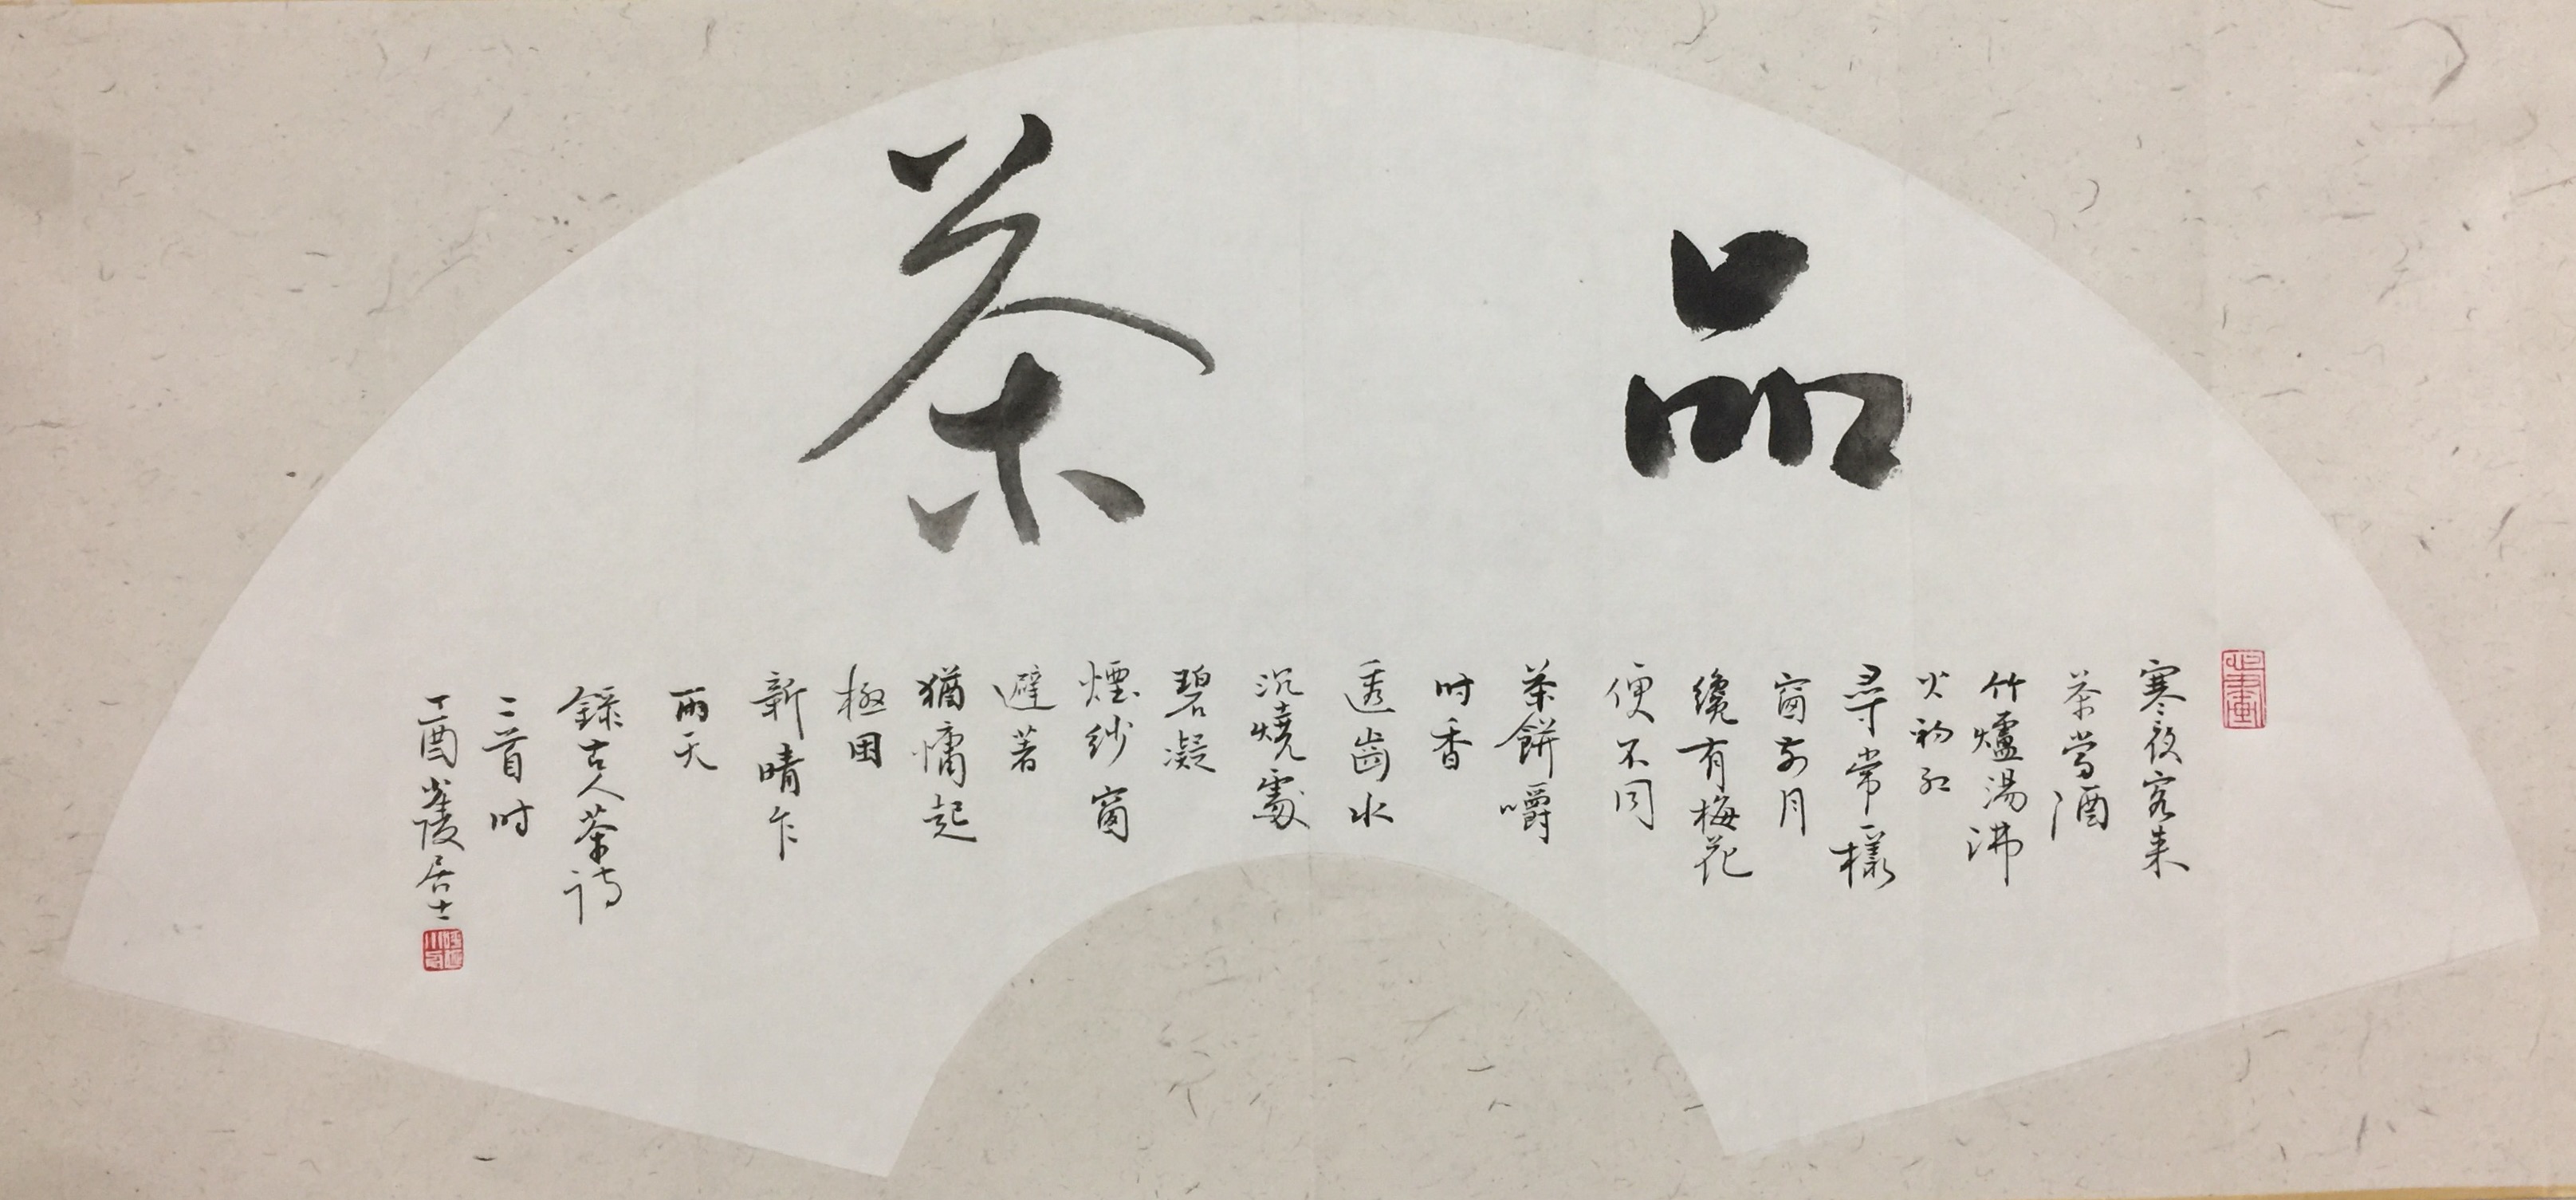 品茶
寒夜客來
茶當酒
竹爐湯沸
火初紅
尋常一樣
窗前月
纔有梅花
便不同
茶餅嚼
时香
透齒水
沉燒處
碧凝
煙紗窗
避著
猶慵起
極困
新晴乍
雨天
錄古人茶詩
二首时
丁酉
居士